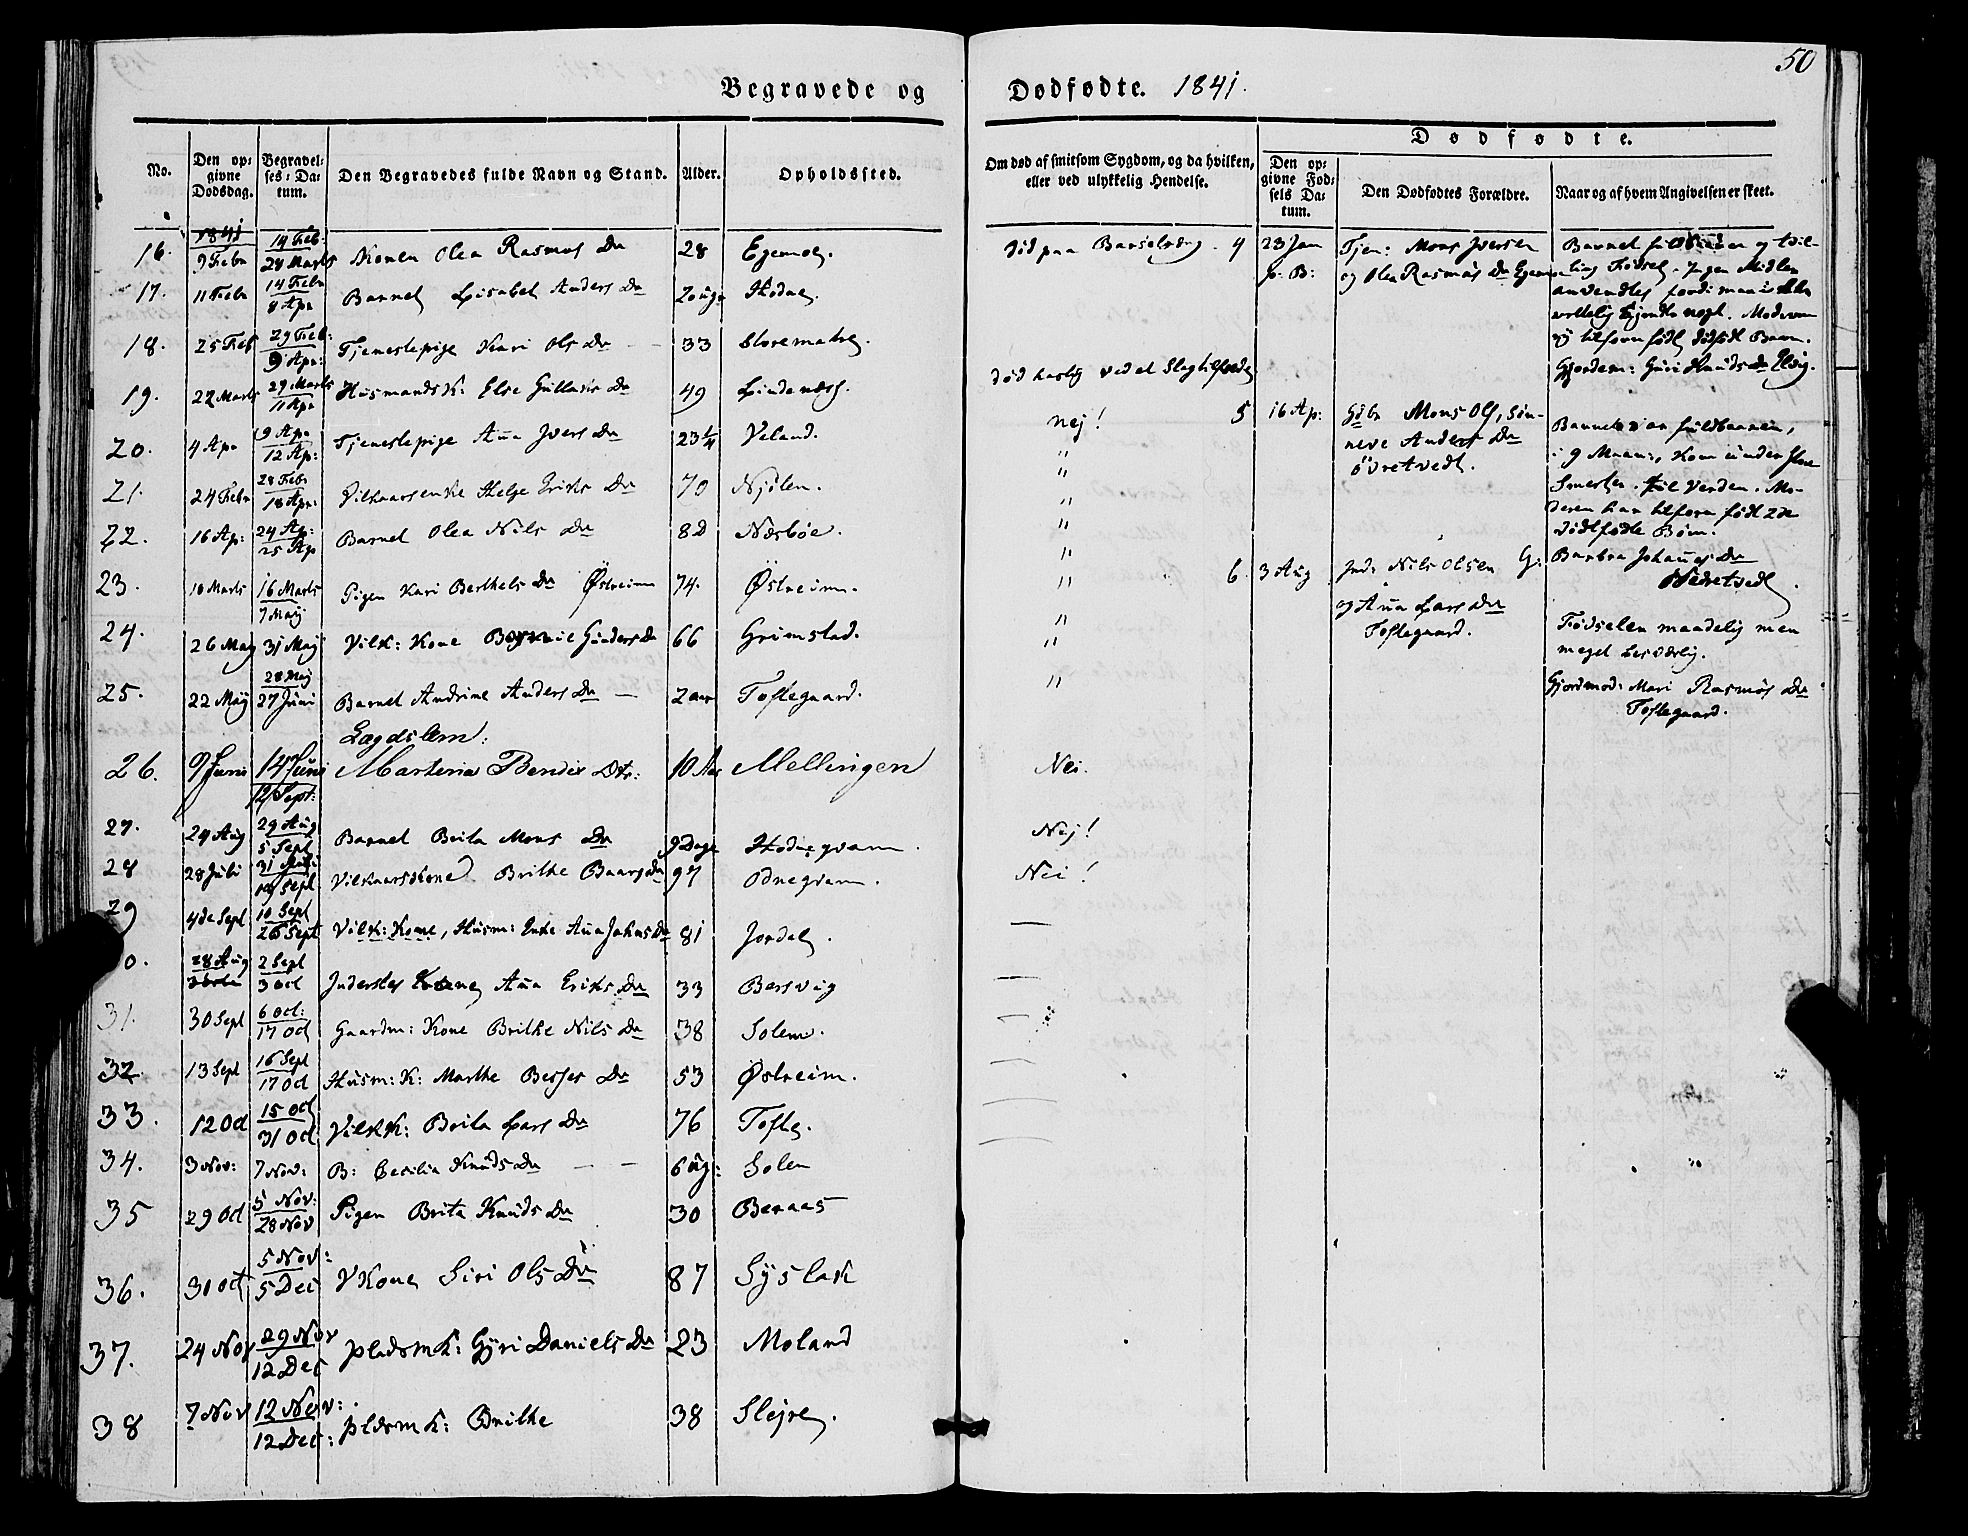 50
Begravede og Dødfødte. 1841.
No. Den opgivne Dødsdag. Begravelses-Datum. Den Begravedes fulde Navn og Stand. Alder. Opholdssted.
Om død af smitsom Sygdom, og da hvilken, eller ved ulykkelig Hendelse.
Dødfødte.
Den opgivne Fødsels Datum. Den Dødfødtes Forældre. Naar og af hvem Angivelsen er skeet.
1841
16. 9 Febr 14 Feb: 28 Marts Konen Olea Rasmus Dr 28 Egemoe.
17. 11 Febr 14 Febr 4 Apr Barnet Lisabet Anders Dr 2 ugr Hodne.
18. 25 Feb 29 Feb: 9 Apr: Tjenestepige Kari Ols Dr 33 Storemale.
19. 22 Marts 29 Marts 11 Apr Husmands K: Else Gullaks Dr 49
20. 4 Apr 9 Apr 12 Ap: Tjenestepige Ana Ivers Dr 23 1/4 Veland.
21. 24 Febr 28 Febr 18 Apr: Vilkaarsenke Helge Eriks Dr 70 Njølen.
22. 16 Ap: 24 Ap: 25 Ap Barnet Olea Nils Dr 8 D Næsbøe.
23. 10 Marts 16 Marts 7 Maij Pigen Kari Berthels Dr Östreim 74. Östreim.
24. 26 Maij 31 Maij Vilk: Kone Gunders Dr 66 Grimstad.
25. 22 Maij 28 Maij 27 Juni Barnet Andrine Anders Dr — 2 aar Toftegaard.
Lægdslem:
26. 9 Juni 14 Juni 12 Sept: Martena Bendix Dtr: 10 Aar Mellingen
27. 24 Aug 29 Aug 5 Sept Barnet Brita Mons Dr 9 Dage Hodnegvam.
28 28 Juli 31 Juli 19 Sept Vilkaarskone Brithe Baars Dr 97 Odnegvam.
29 4de Sept 10 Sept 26 Sept Vilk: Kone, Husm: Enke Ana Johns Dr 81 Jordal.
0. 28 Aug 2 Sept 3 Oct Inderstes Kone Ana Eriks Dr 33 Bersvig
31. 30 Sept 6 Oct: 17 Oct Gaardm: Kone Brithe Nils Dr 38 Solem.
32. 13 Sept 16 Sept 17 Oct Husm: K: Marthe Besses Dr 53 Östreim.
33. 12 Oct 15 Oct 31 Oct Vilk K: Brita Lars Dr 76 Tofte.
34. 3 Nov: 7 Nov: B: Cecilia Knuds Dr — — 6 ug: Solem
35 29 Oct 5 Nov: 28 Nov Pigen Brita Knuds Dr 30 Bernaas
36. 31 Oct 5 Nov: 5 Dec V Kone Siri Ols Dr 87 Syslak
37. 24 Nov 29 Nov 12 Dec pladsm K: Gyri Daniels Dr 23 Moland
38 7 Nov 12 Nov: 12 Dec: pldsm K: Brithe 38 Slejre.
død paa Barselseng.
død hastig ved et Slagtilfælde
nej!
"
"
"
"
"
"
"
"
"
Nei.
Nej!
Nei!
4 23 Jan p. B: Tjen: Mons Iversen og Olea Rasmus Dr Egemoe
Barnet fuldbaaren og
Fødsel. Ingen Midler
anvendtes fordi man
Moderen
tilforn født dødfødt Barn.
Gjordem: Guri Knuds Dr
5 16 Ap: Gbr Mons Ols, Synneve Anders Dr övretvedt.
Barnet var fuldbaaren,
i 9 Maan:, kom under store
Smerter til Verden. Moderen
har tilforn født 2de
dødfødte Børn.
Barbra Johannes Dr
Nedretvedt.
6. 3 Aug Ind: Nils Olsen G:
og Ana Lars Dr
Toftegaard.
Fødselen maadelig men
meget besværlig.
Gjordmod: Mari Rasmus Dr
Toftegaard.